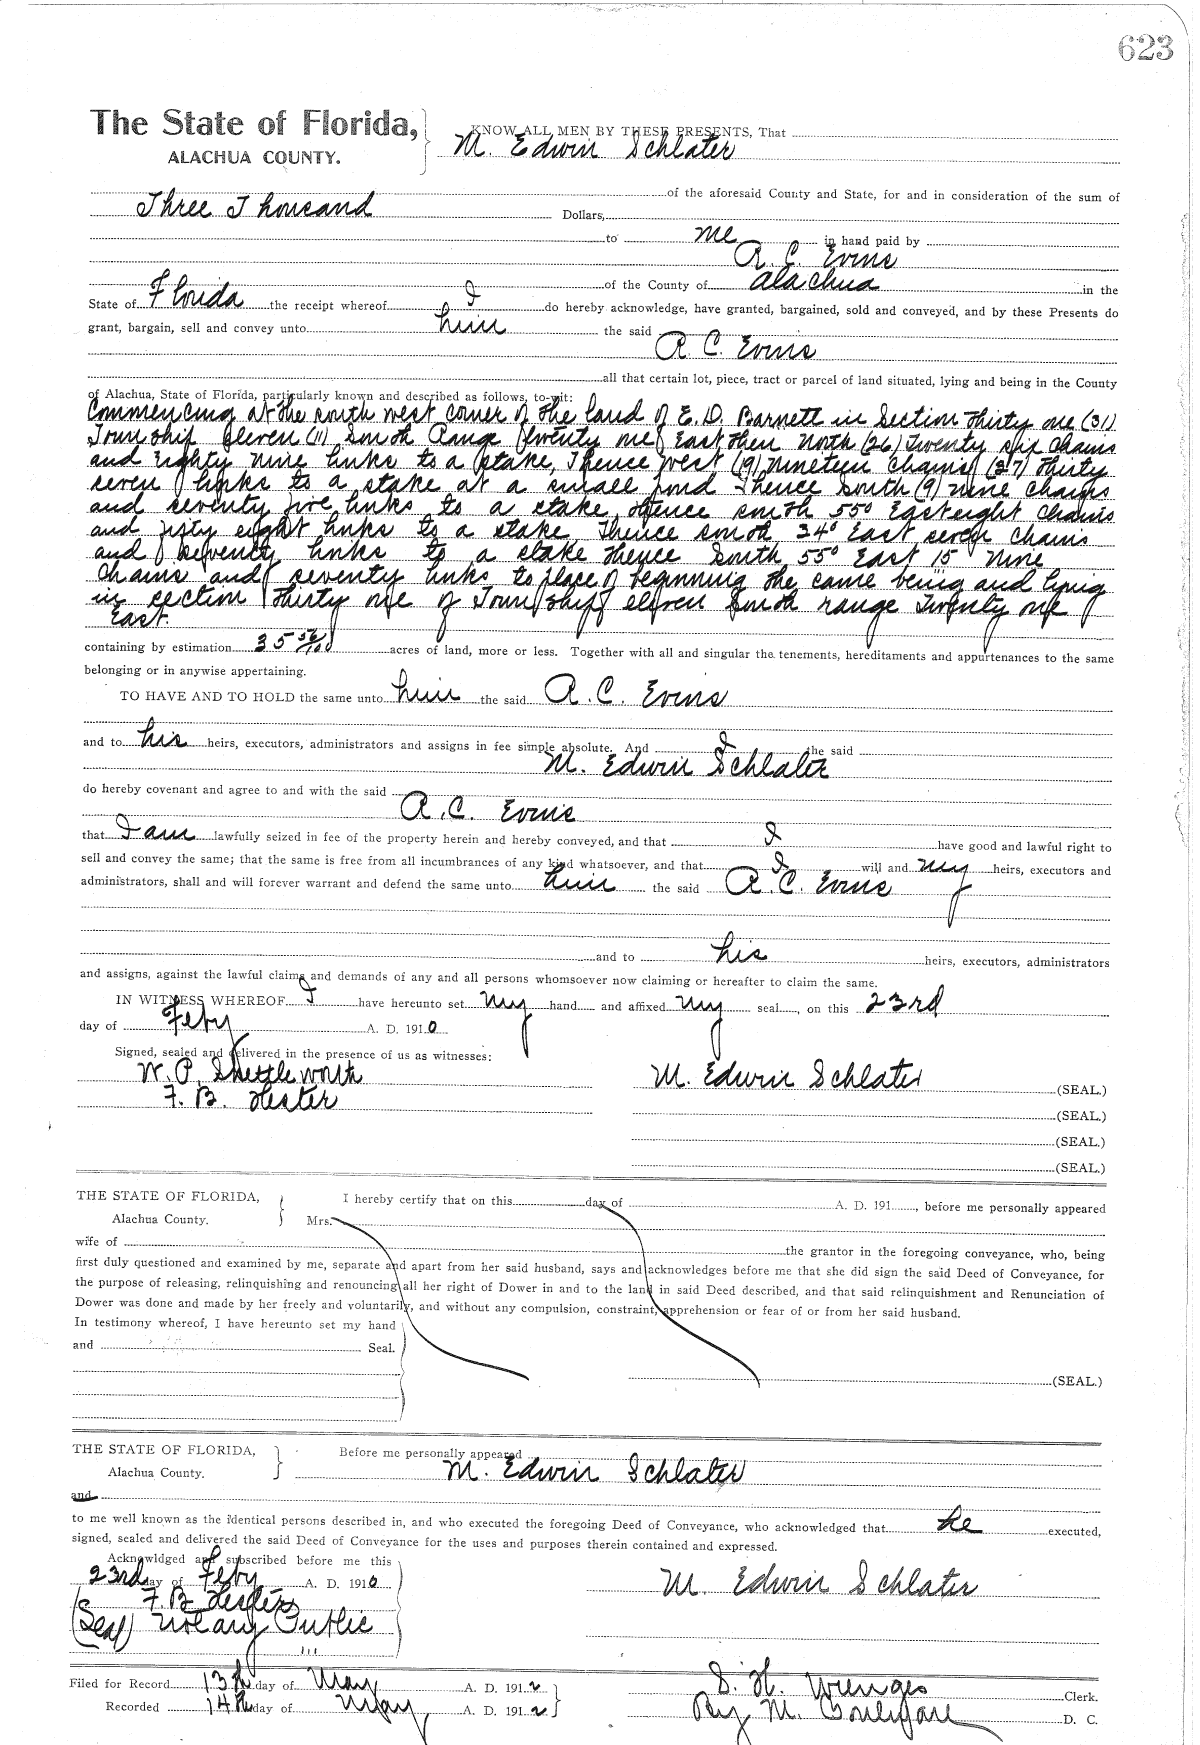 623
The State of Florida,
ALACHUA COUNTY.
KNOW ALL MEN BY THESE PRESENTS, That
M. Edwin Schlater
of the aforesaid County and State, for and in consideration of the sum of
Three Thousand Dollars,
to me in hand paid by
A. C. Evins
of the County of Alachua in the
State of Florida the receipt whereof I do hereby acknowledge, have granted, bargained, sold and conveyed, and by these Presents do
grant, bargain, sell and convey unto him the said
A. C. Evins
all that certain lot, piece, tract or parcel of land situated, lying and being in the County
of Alachua, State of Florida, particularly known and described as follows, to-wit:
Commencing at the south west corner of the land of E. D. Barnett in Section Thirty one (31)
Township Eleven (11) South Range Twenty one East then North (26) Twenty six chains
and Eighty Nine links to a stake, Thence West (19) Nineteen chains (37) Thirty
seven links to a stake at a small pond Thence South (9) nine chains
and seventy five links to a stake thence south 55° East eight chains
and fifty eight links to a stake, Thence south 34° East seven chains
and seventy links to a stake thence South 55° East 15 Nine
chains and seventy links to place of beginning the same being and lying
in section Thirty one of Township eleven South range Twenty one
East.
containing by estimation 35 56/100 acres of land, more or less. Together with all and singular the tenements, hereditaments and appurtenances to the same
belonging or in anywise appertaining.
TO HAVE AND TO HOLD the same unto him the said A. C. Evins
and to his heirs, executors, administrators and assigns in fee simple absolute. And I the said
M. Edwin Schlater
do hereby covenant and agree to and with the said
A. C. Evins
that I am lawfully seized in fee of the property herein and hereby conveyed, and that I have good and lawful right to
sell and convey the same; that the same is free from all incumbrances of any kind whatsoever, and that I will and my heirs, executors and
administrators, shall and will forever warrant and defend the same unto him the said A. C. Evins
and to his heirs, executors, administrators
and assigns, against the lawful claims and demands of any and all persons whomsoever now claiming or hereafter to claim the same.
IN WITNESS WHEREOF I have hereunto set my hand and affixed my seal, on this 23rd
day of Feby A. D. 1910
Signed, sealed and delivered in the presence of us as witnesses:
W. P. Shettleworth
F. B. Hester
M. Edwin Schlater (SEAL.)
(SEAL.)
(SEAL.)
(SEAL.)
THE STATE OF FLORIDA,
Alachua County.
I hereby certify that on this day of A. D. 191 , before me personally appeared
Mrs.
wife of the grantor in the foregoing conveyance, who, being
first duly questioned and examined by me, separate and apart from her said husband, says and acknowledges before me that she did sign the said Deed of Conveyance, for
the purpose of releasing, relinquishing and renouncing all her right of Dower in and to the land in said Deed described, and that said relinquishment and Renunciation of
Dower was done and made by her freely and voluntarily, and without any compulsion, constraint, apprehension or fear of or from her said husband.
In testimony whereof, I have hereunto set my hand
and Seal.
(SEAL.)
THE STATE OF FLORIDA,
Alachua County.
Before me personally appeared
M. Edwin Schlater
and
to me well known as the identical persons described in, and who executed the foregoing Deed of Conveyance, who acknowledged that he executed,
signed, sealed and delivered the said Deed of Conveyance for the uses and purposes therein contained and expressed.
Acknowldged and subscribed before me this
23rd day of Feby A. D. 1910
F. B. Hester
(Seal) Notary Public
M. Edwin Schlater
Filed for Record 13th day of May A. D. 1912
Recorded 14th day of May A. D. 1912
S. H. Wienges Clerk.
By M. D. C.